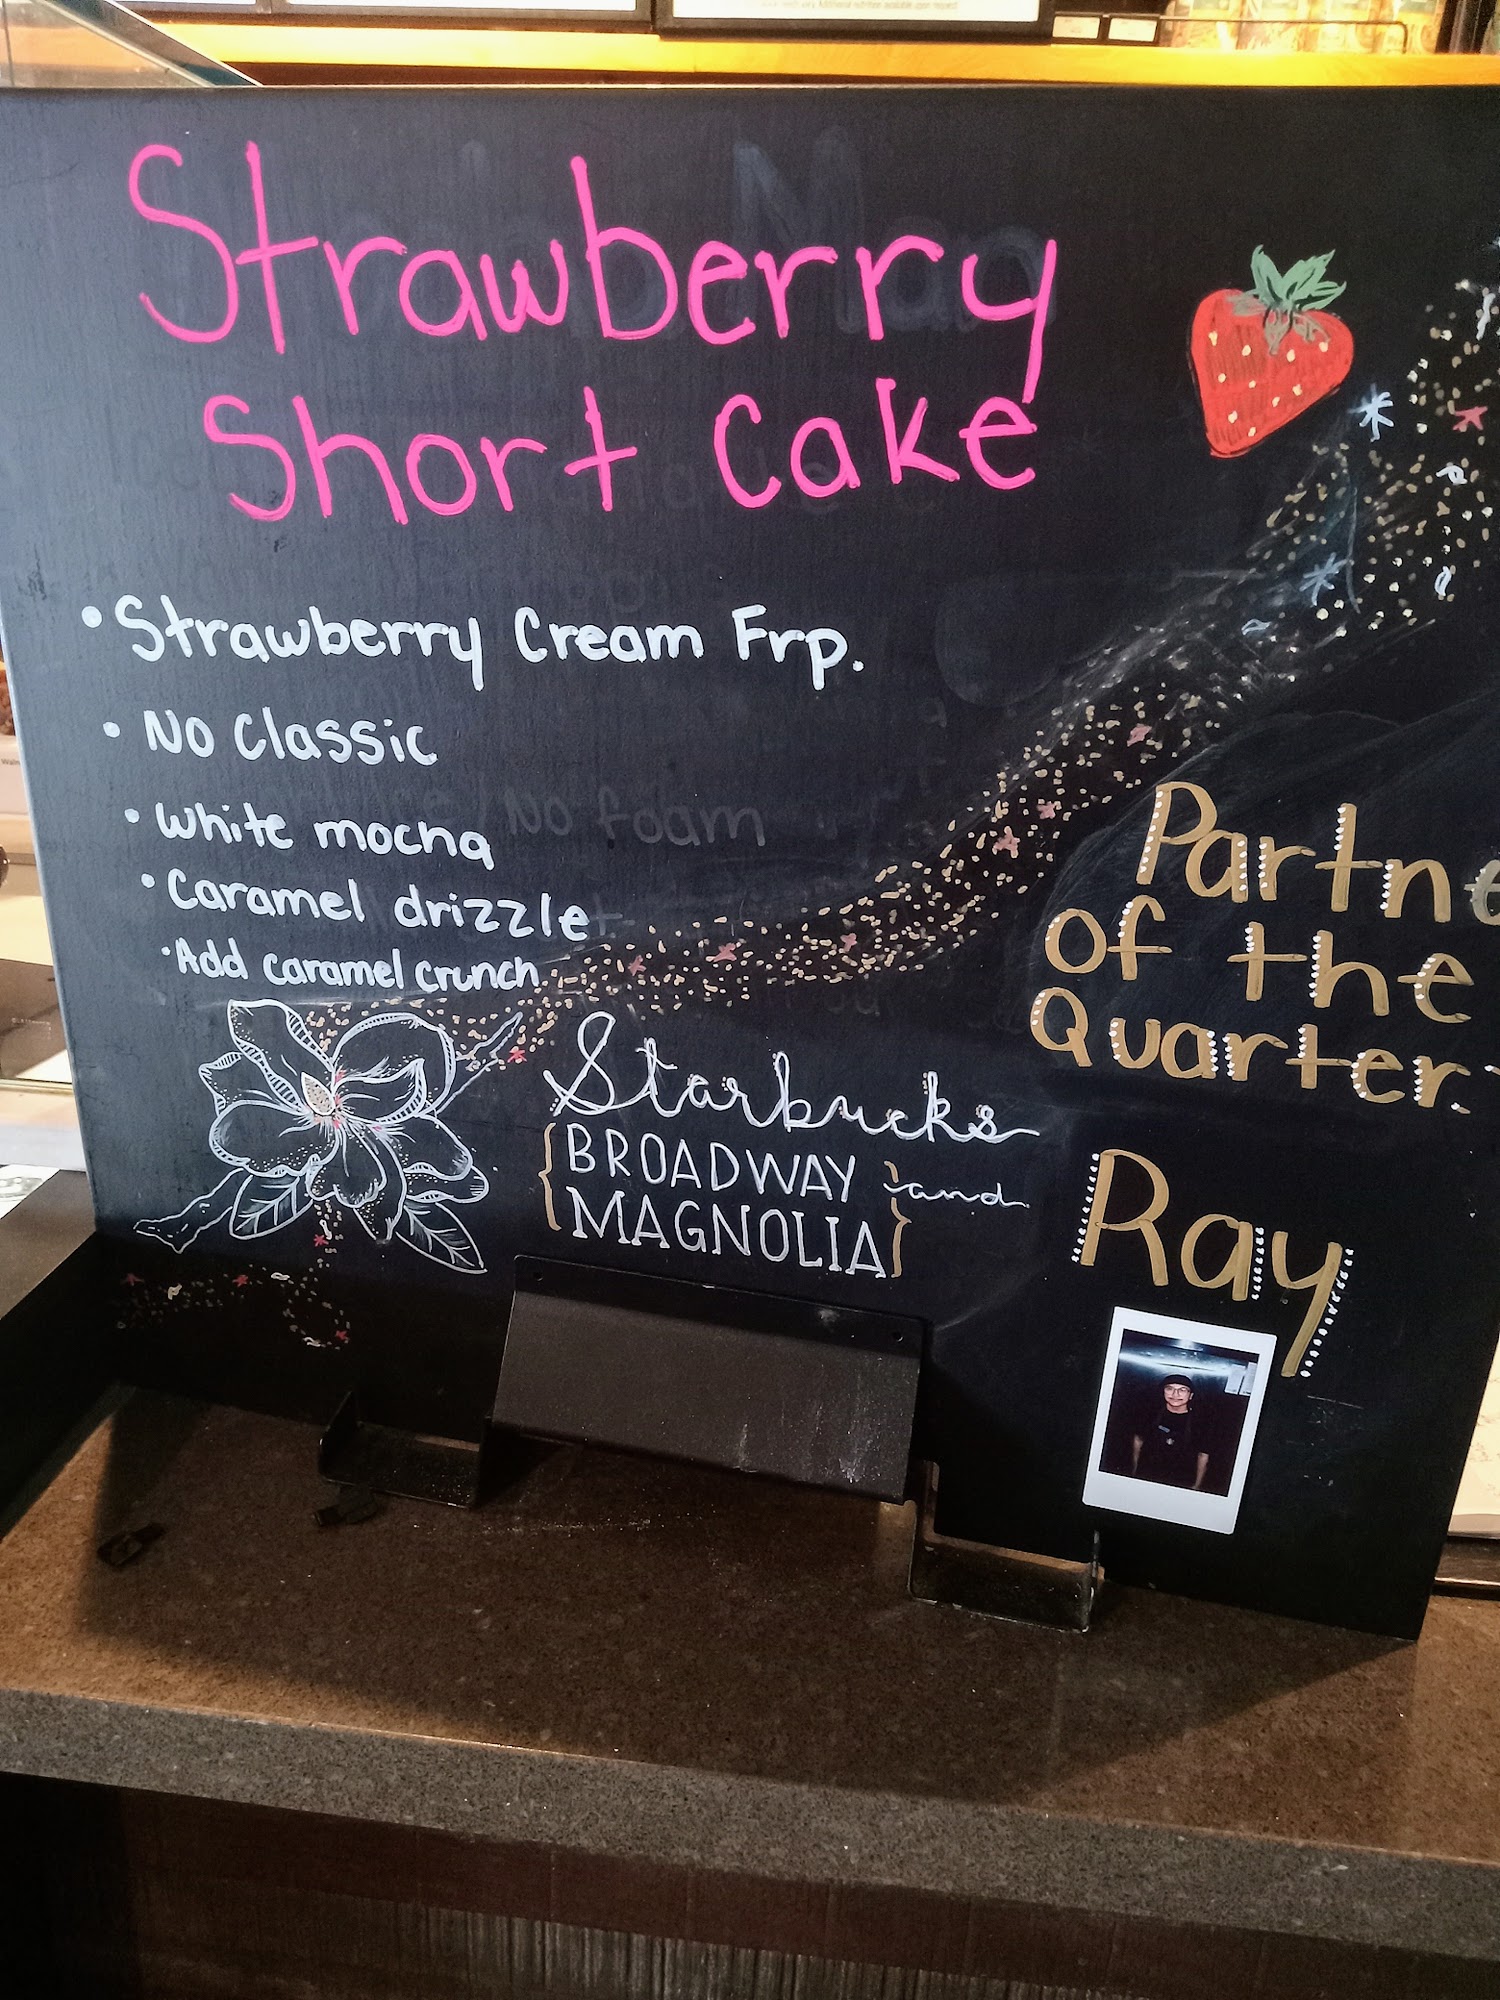 Strawberry
Short Cake
• Strawberry Cream Frp.
• No Classic
• White mocha
No foam
• Caramel drizzle
• Add caramel crunch
Starbucks
{BROADWAY and
MAGNOLIA}
Partne
of the
Quarter.
Ray